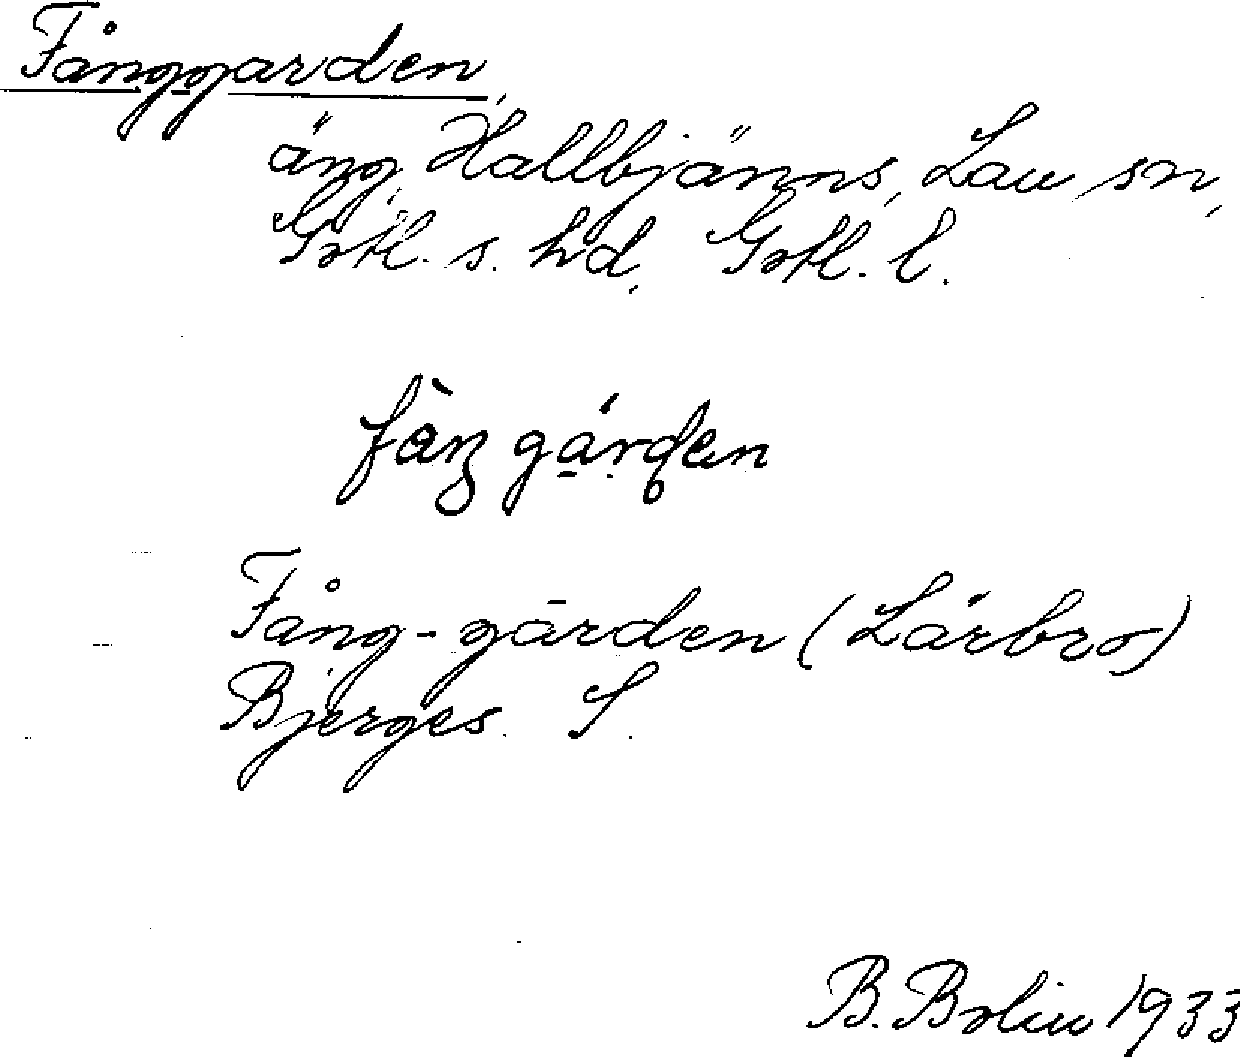 Fånggarden,
äng, Hallbjänns, Lau sn,
Gotl. s. hd, Gotl. l.
Fång-gārden (Lärbro)
Bjerges. S.
B. Bolin 1933